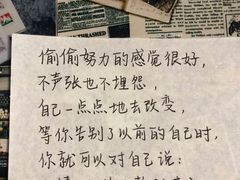 THRASHED
偷偷努力的感觉很好，
不声张也不埋怨，
自己一点点地去改变，
等你告别了以前的自己时，
你就可以对自己说：